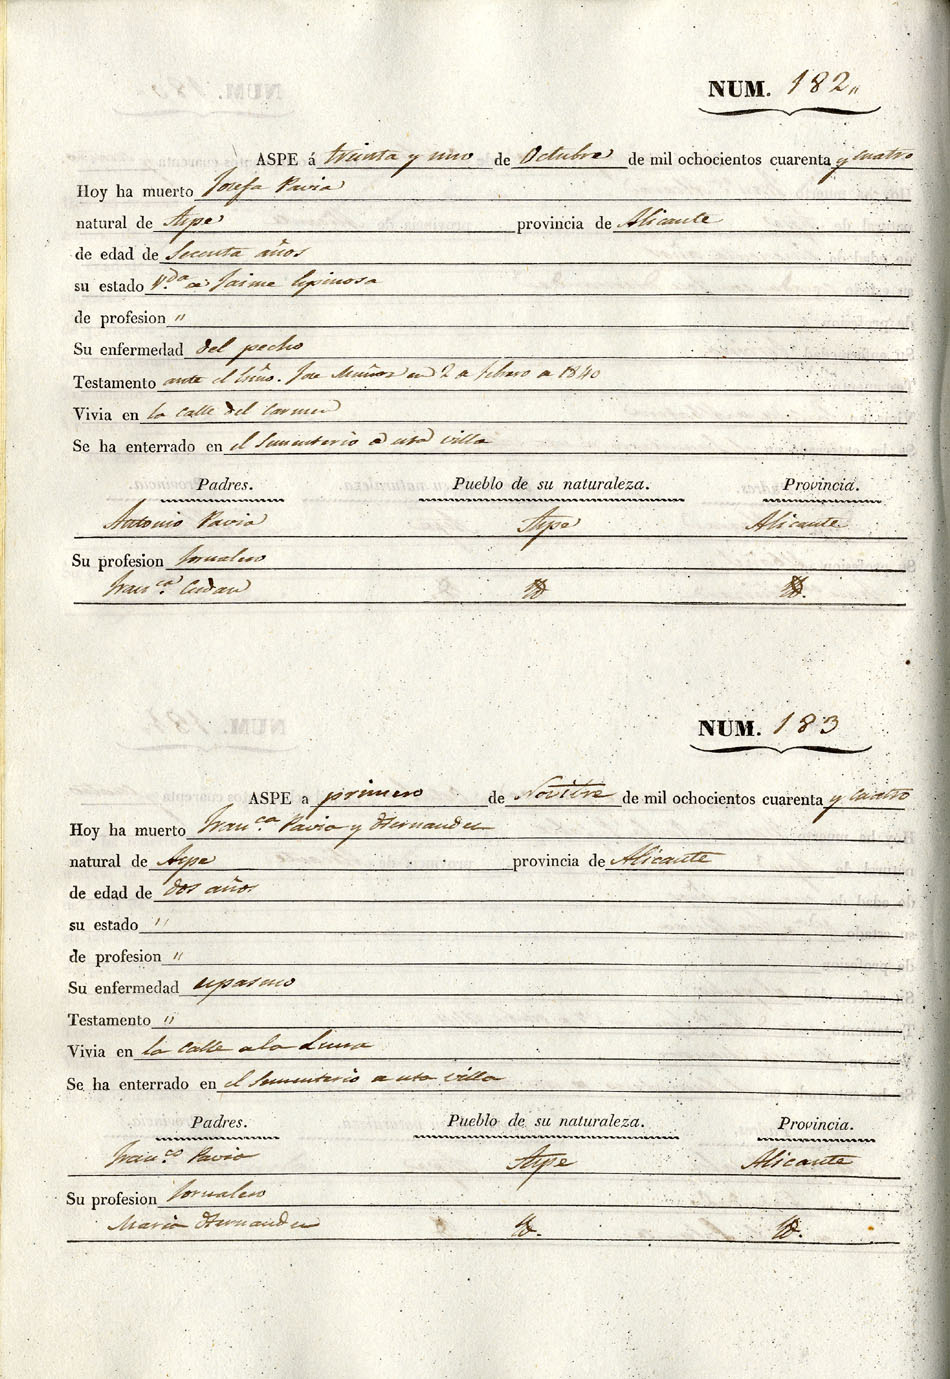 NUM. 182"
ASPE á treinta y uno de Octubre de mil ochocientos cuarenta y cuatro
Hoy ha muerto Josefa Pavia
natural de Aspe provincia de Alicante
de edad de años
su estado V.da de Jaime Espinosa
de profesion "
Su enfermedad del pecho
Testamento ante el Esño. Jose Muñoz en 2 de febrero de 1840
Vivia en la calle del Carmen
Se ha enterrado en el Sementerio de esta villa
Padres. Pueblo de su naturaleza. Provincia.
Antonio Pavia Aspe Alicante
Su profesion Jornalero
Fran.ca Id. Id.
NUM. 183
ASPE a primero de Novibre de mil ochocientos cuarenta y cuatro
Hoy ha muerto Fran.ca Pavia y Hernandez
natural de Aspe provincia de Alicante
de edad de dos años
su estado "
de profesion "
Su enfermedad espasmo
Testamento "
Vivia en la calle de la Luna
Se ha enterrado en el Sementerio de esta villa
Padres. Pueblo de su naturaleza. Provincia.
Fran.co Pavia Aspe Alicante
Su profesion Jornalero
Maria Hernandez Id. Id.